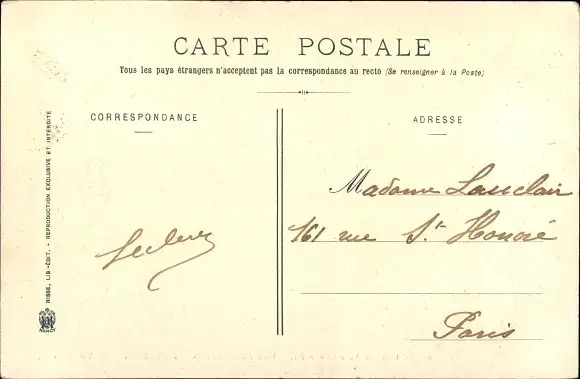 CARTE POSTALE
Tous les pays étrangers n'acceptent pas la correspondance au recto (Se renseigner à la Poste)
CORRESPONDANCE
ADRESSE
Madame Lauclair
161 rue St. Honoré
Paris
Leclerc
RISSE, LIB.-ÉDIT. - REPRODUCTION EXCLUSIVE ET INTERDITE
NANCY